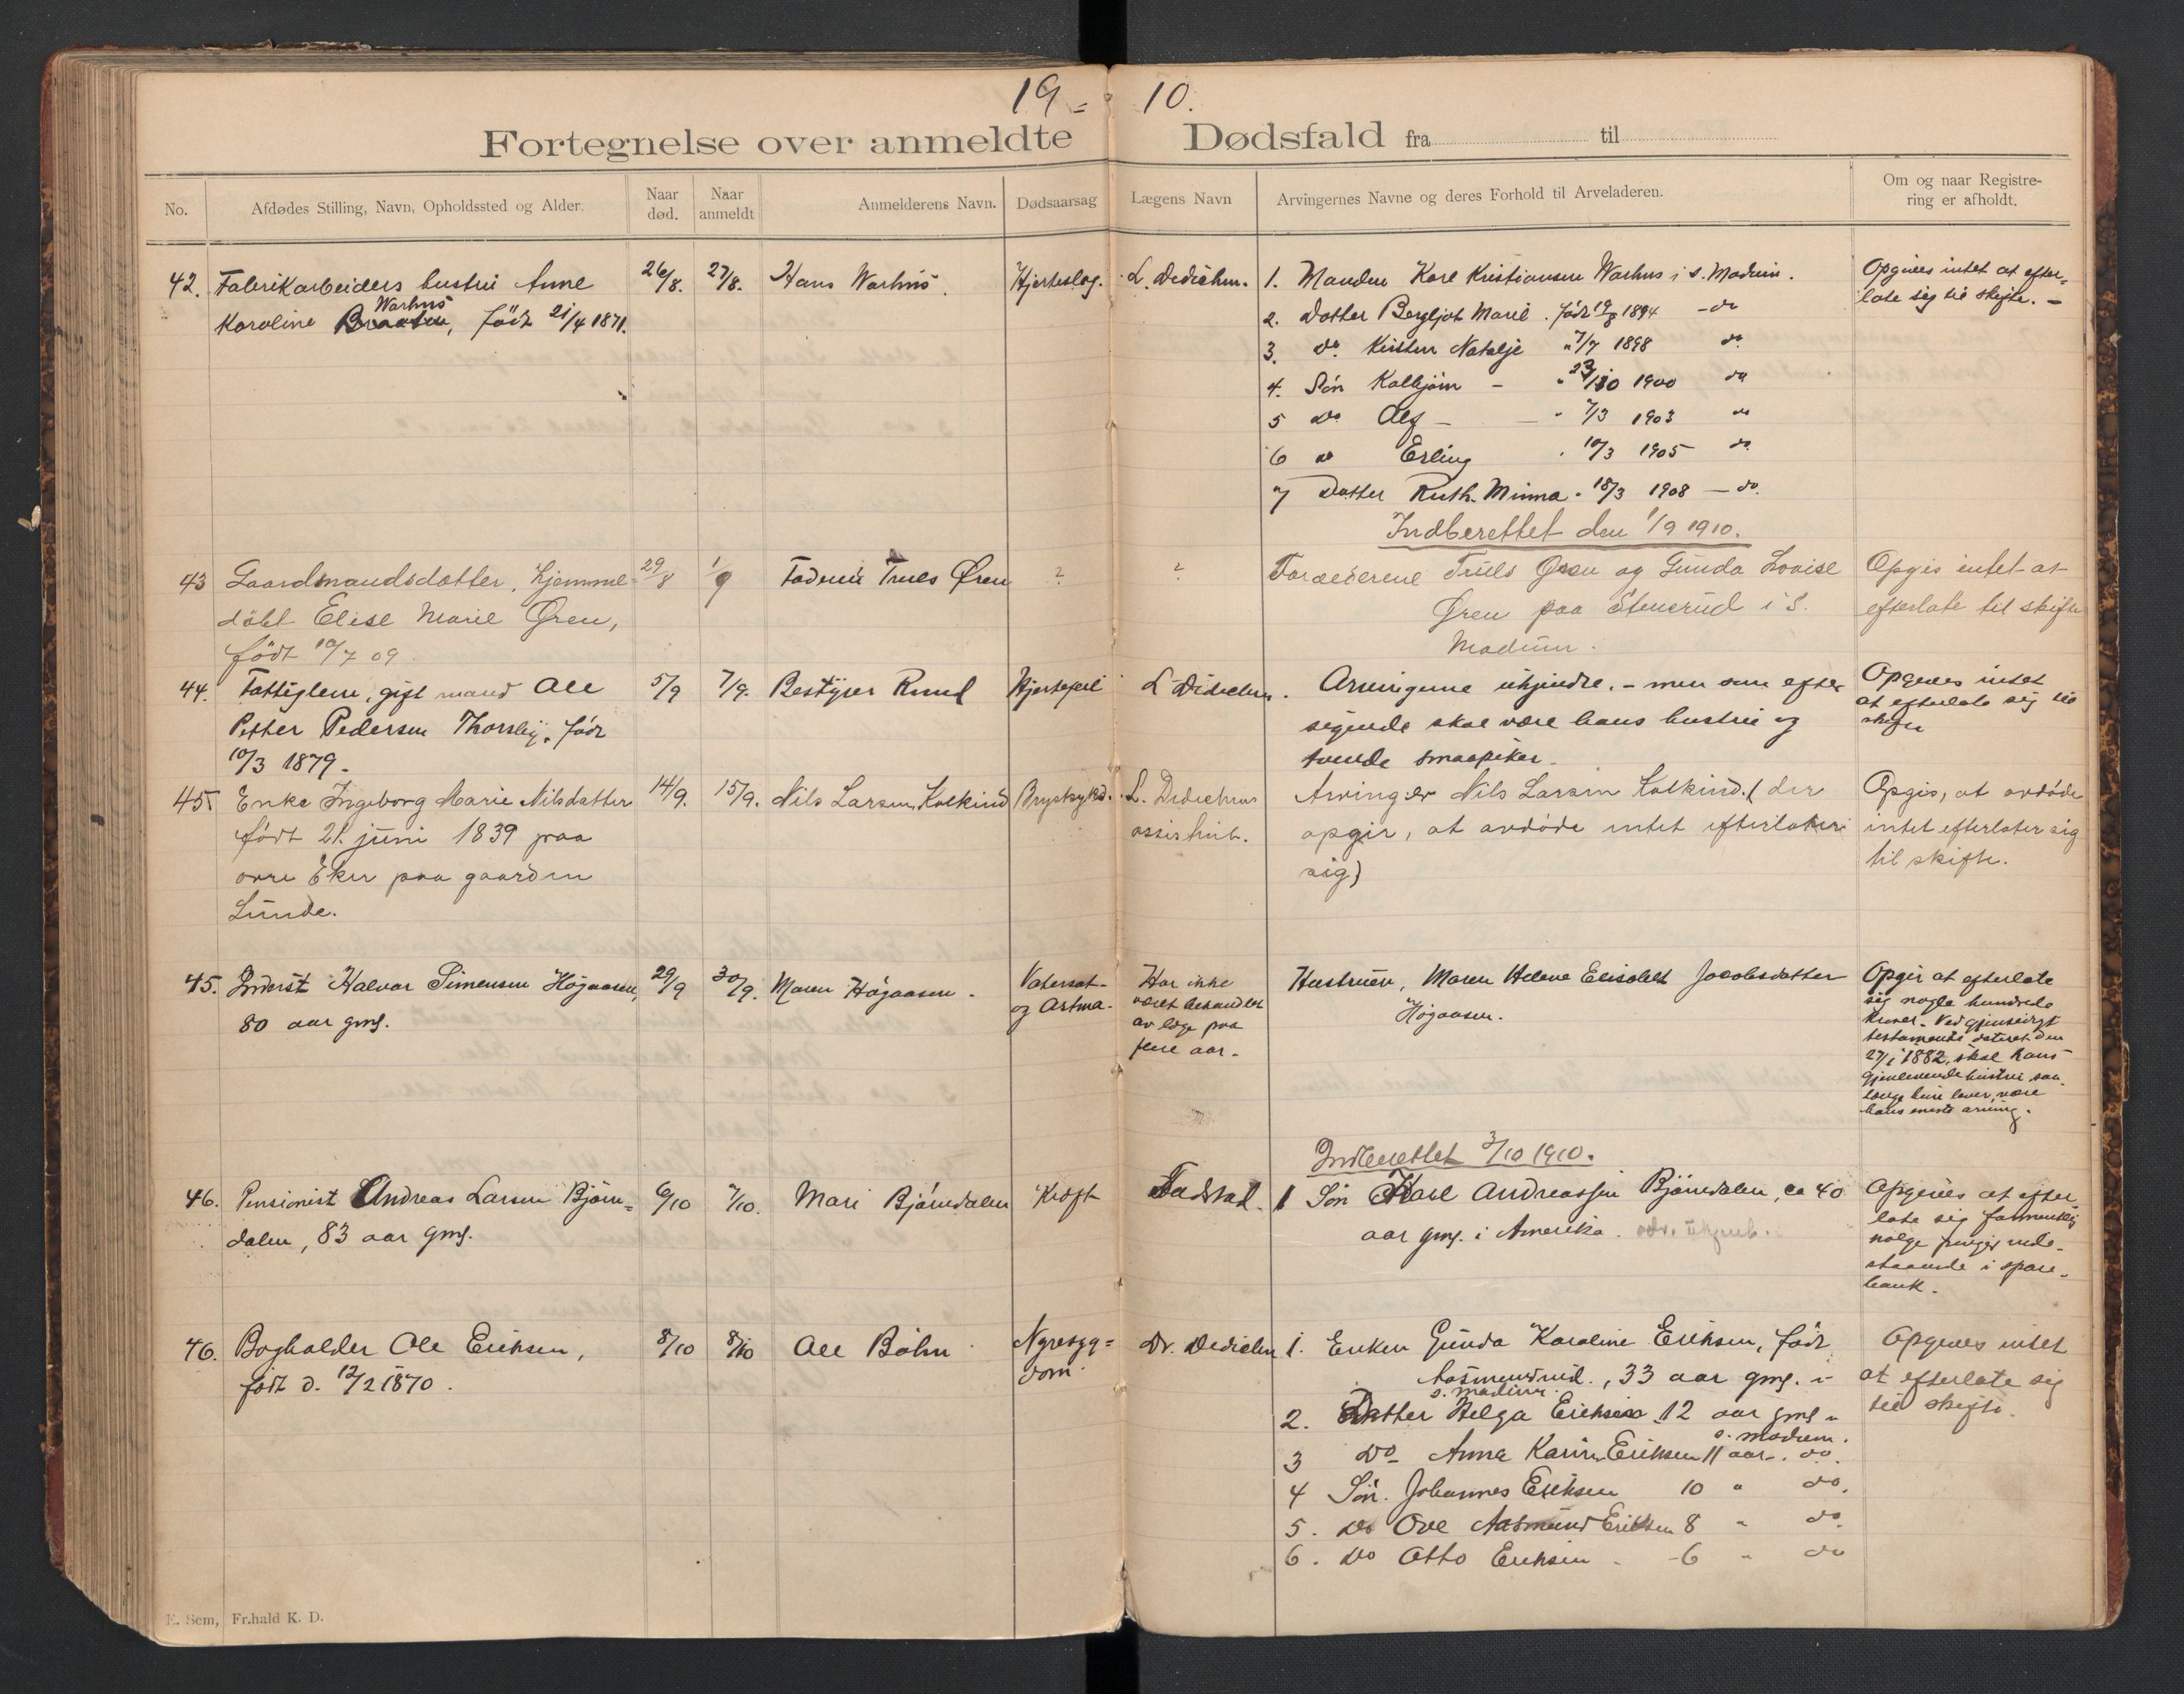 19 - 10.
Fortegnelse over anmeldte Dødsfald fra til
No. Afdødes Stilling, Navn, Opholdssted og Alder. Naar død. Naar anmeldt Anmelderens Navn. Dødsaarsag Lægens Navn Arvingernes Navne og deres Forhold til Arveladeren. Om og naar Registrering er afholdt.
42. Fabrikarbeiders hustru Anne
Warhus
Karoline Braaten, født 21/4 1871.
26/8. 27/8. Hans Warhus. Hjerteslag. L. Dedichen.
1. Manden Karl Kristiansen Warhus i S. Modum.
2. Datter Bergljot Marie. født 19/8 1894 - do
3. do. Kirsten Natalje " 7/7 1898 do
4. Søn Kolbjørn - " 23/10 1900 do
5 do Alf - - " 7/3 1903 do
6 do Erling " 10/3 1905 do
7 Datter Ruth Minna " 18/3 1908 - do.
Indberettet den 1/9 1910.
Opgives intet at efter-
late sig til skifte. -
43 Gaardmandsdatter, hjemme-
døbt Elise Marie Øren,
født 10/7 09
29/8 1/9 Faderen Truls Øren ? ?
Forælderene Truls Øren og Gunda Lovise
Øren paa Stenerud i S.
Modum.
Opgis intet at
efterlate til skifte
44. Fattiglem, gift mand Ole
Petter Pedersen Thorsby, født
10/3 1879.
5/9 7/9. Bestyrer Ruud Hjertefeil L Dedichen.
Arvingerne ukjendte. - men som efter
sigende skal være hans hustru og
tvende smaapiker.
Opgives intet
at efterlate sig til
skifte
45 Enke Ingeborg Marie Nilsdatter
født 21. juni 1839 paa
øvre Eker paa gaarden
Lunde.
14/9. 15/9. Nils Larsen Kolkind Brystsykd. L. Dedichens
assistent.
Arving er Nils Larsen Kolkind. (der
opgir, at avdøde intet efterlater
sig)
Opgis, at avdøde
intet efterlater sig
til skifte.
45. Inderst Halvor Simensen Høgaasen,
80 aar gml.
29/9 30/9. Maren Høgaasen. Vatersot
og Astma.
Har ikke
været behandlet
av læge paa
flere aar.
Hustruen, Maren Helene Elisabet Jacobsdatter
Høgaasen.
Opgir at efterlate
sig nogle hundrede
kroner. Ved gjensidigt
testamente dateret den
27/1 1882, skal hans
gjenlevende hustru saa
længe hun lever, være
hans eneste arving.
Indberettet 3/10 1910.
46. Pensionist Andreas Larsen Bjørn-
dalen, 83 aar gml.
6/10 7/10. Mari Bjørndalen Kræft Fadstad.
1 Søn Karl Andreassen Bjørndalen, ca 40
aar gml. i Amerika. adr. ukjent.
Opgives at efter
late sig formentlig
nolge penger inde-
staaende i spare-
bank.
46. Bogholder Ole Eriksen,
født d. 12/2 1870.
8/10 8/10 Ole Bøhn Nyresyg=
dom
Dr. Dedichen
1. Enken Gunda Karoline Eriksen, født
Aasmundrud., 33 aar gml. i
S. Modum.
2. Datter Helga Eriksen 12 aar gml i
S. Modum.
3 Do - Anna Karin Eriksen 11 aar. do.
4 Søn. Johannes Eriksen 10 " do.
5. Do Ove Aasmund Eriksen 8 " do.
6. Do Otto Eriksen - 6 " do
Opgives intet
at efterlate sig
til skifte.
E. Sem, Fr.hald K. D.